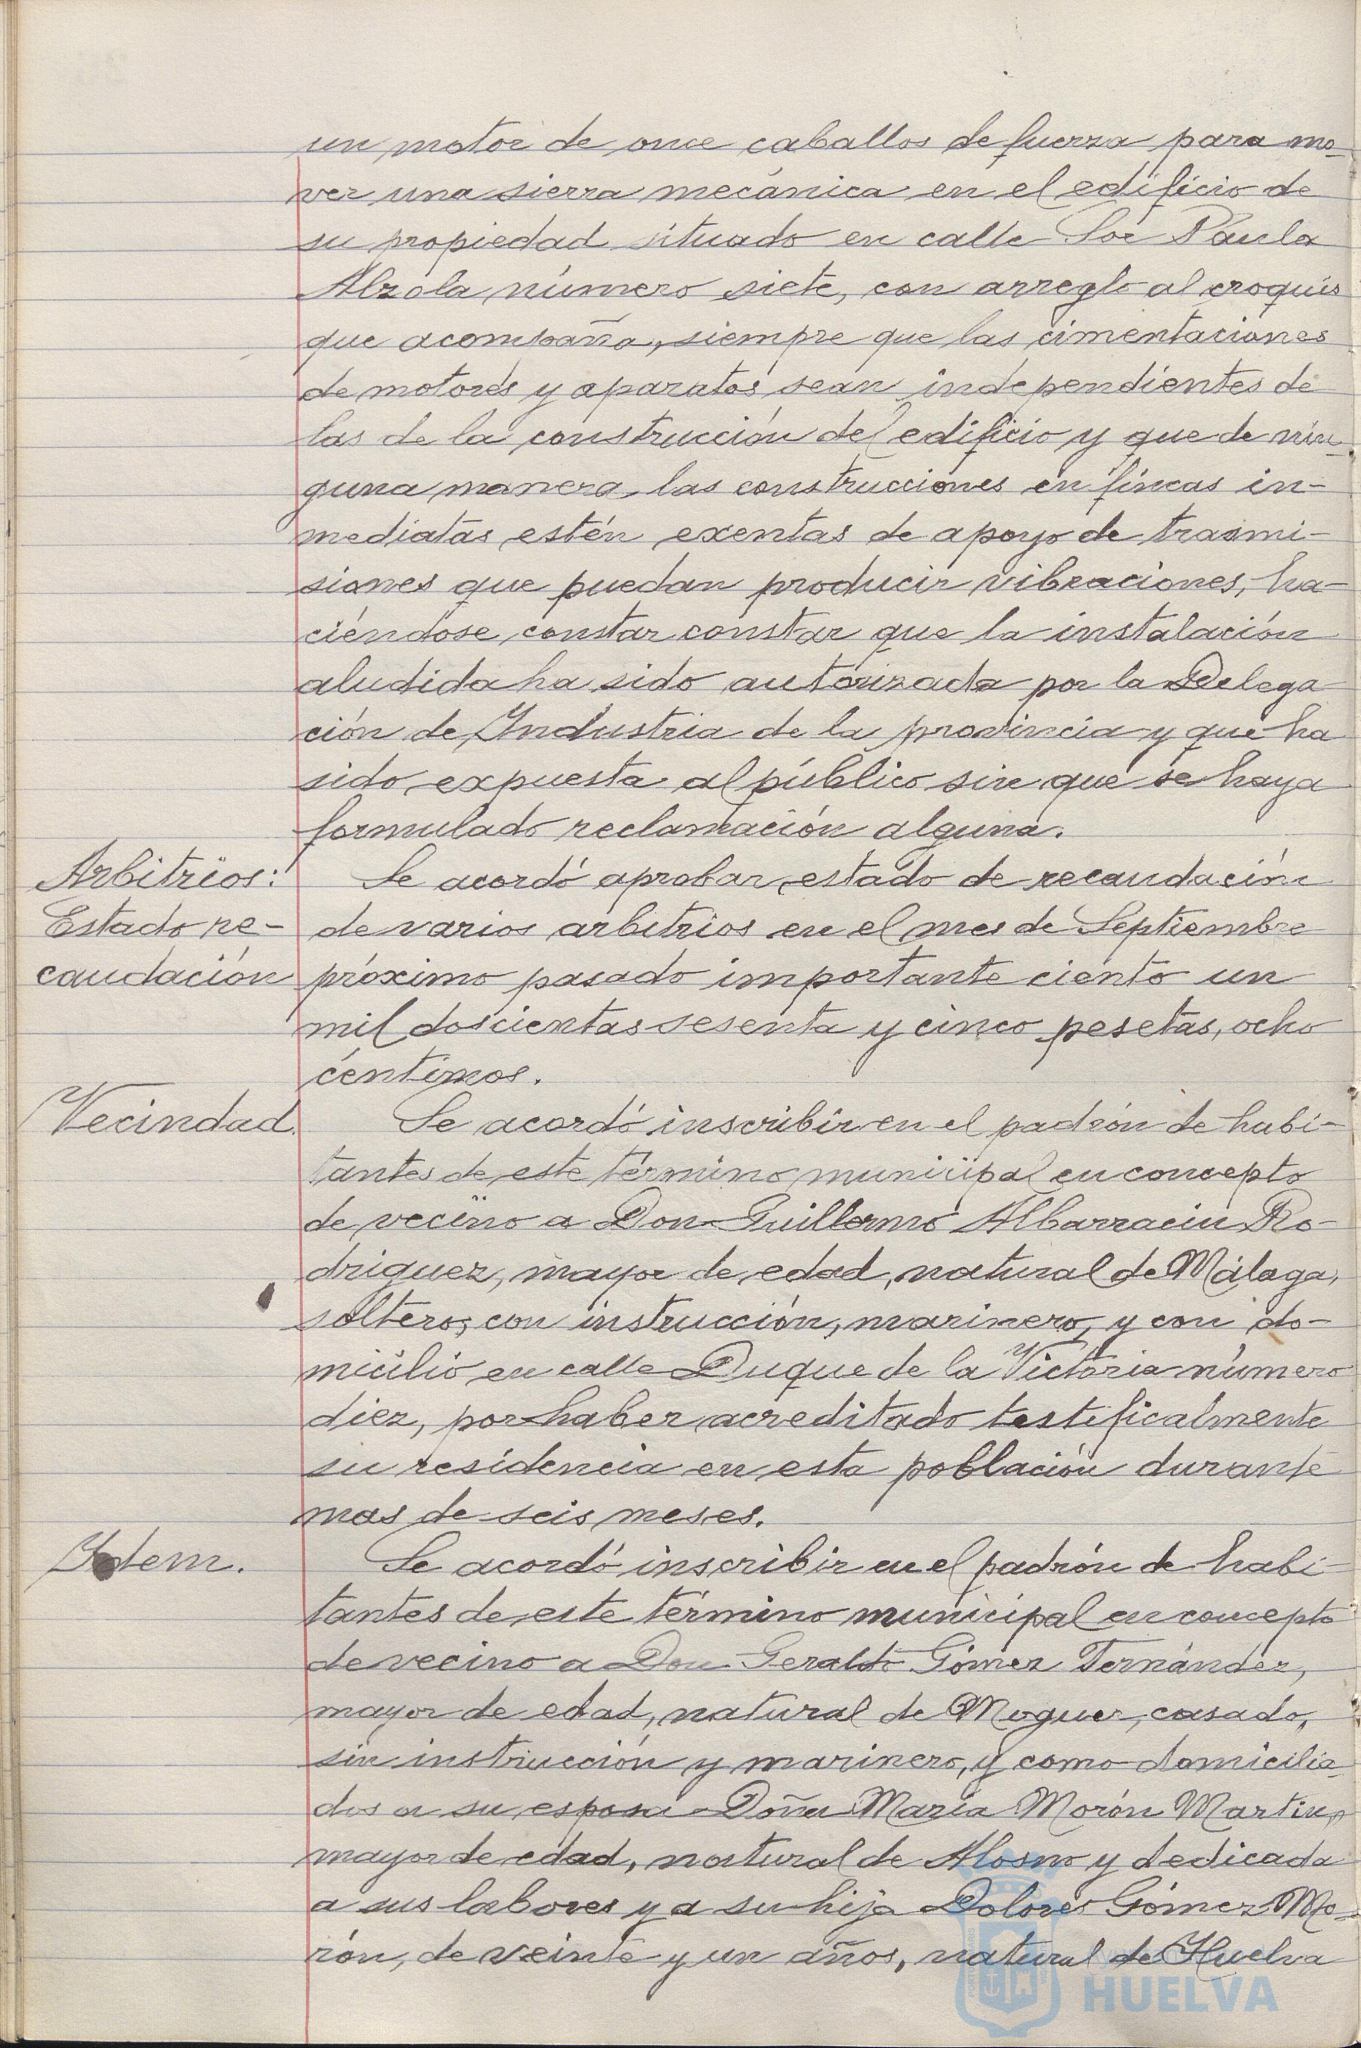 un motor de once caballos de fuerza para mo-
ver una sierra mecánica en el edificio de
su propiedad situado en calle Sor Paula
Alzola número siete, con arreglo al croquis
que acompaña, siempre que las cimentaciones
de motores y aparatos sean independientes de
las de la construcción del edificio y que de nin-
guna manera, las construcciones en fincas in-
mediatas estén exentas de apoyo de trasmi-
siones que puedan producir vibraciones, ha-
ciéndose constar constar que la instalación
aludida ha sido autorizada por la Delega
ción de Industria de la provincia y que ha
sido expuesta al público sin que se haya
formulado reclamación alguna.
Arbitrios:
Estado re-
caudación
Se acordó aprobar estado de recaudación
de varios arbitrios en el mes de Septiembre
próximo pasado importante ciento un
mil doscientas sesenta y cinco pesetas, ocho
céntimos.
Vecindad.
Se acordó inscribir en el padrón de habi-
tantes de este término municipal en concepto
de vecino a Don Guillermo Albarracin Ro-
driguez, mayor de edad, natural de Málaga,
soltero, con instrucción, marinero, y con do-
micilio en calle Duque de la Victoria número
diez, por haber acreditado testificalmente
su residencia en esta población durante
mas de seis meses.
Ydem.
Se acordó inscribir en el padrón de habi-
tantes de este término municipal en concepto
de vecino a Don Geraldo Gómez Fernández,
mayor de edad, natural de Moguer, casado,
sin instrucción y marinero, y como domicilia-
dos a su esposa Doña María Morón Martin,
mayor de edad, natural de Alosno y dedicada
a sus labores y a su hija Dolores Gómez Mo-
rón, de veinte y un años, natural de Huelva
HUELVA